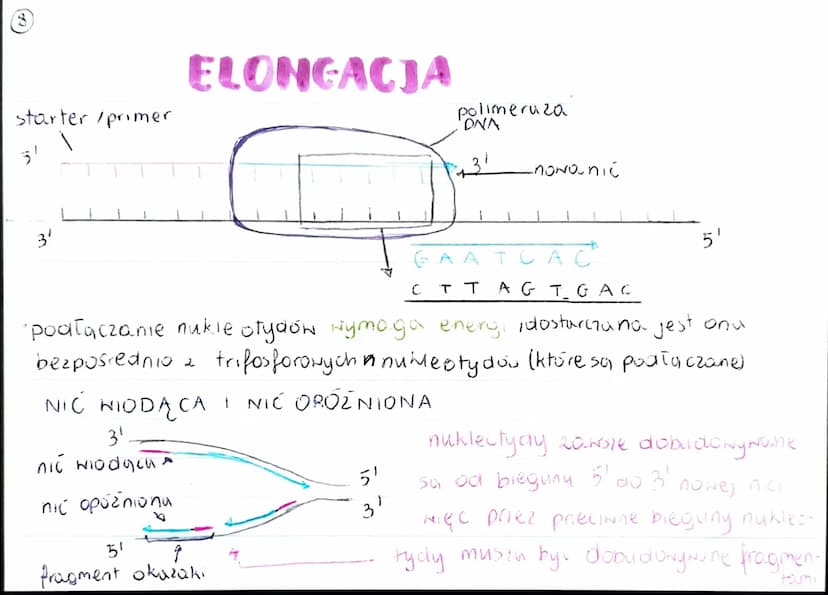 8
ELONGACJA
starter/primer
polimeraza
DNA
5'
3'
nowa nić
3'
5'
G A A T C A C
C T T A G T G A C
podłączanie nukleotydów wymaga energi, dostarczana jest ona
bezpośrednio z trifosforowych nukleotydów (które są podłączane)
NIĆ WIODĄCA I NIĆ OPÓŹNIONA
3'
nić wiodąca
5'
nić opóźniona
3'
5'
fragment okazaki
nukleotydy zawsze dobudowywane
są od bieguna 5' do 3' nowej nici
więc przez przeciwne bieguny nukleo-
tydy muszą być dobudowywane fragmen-
tami